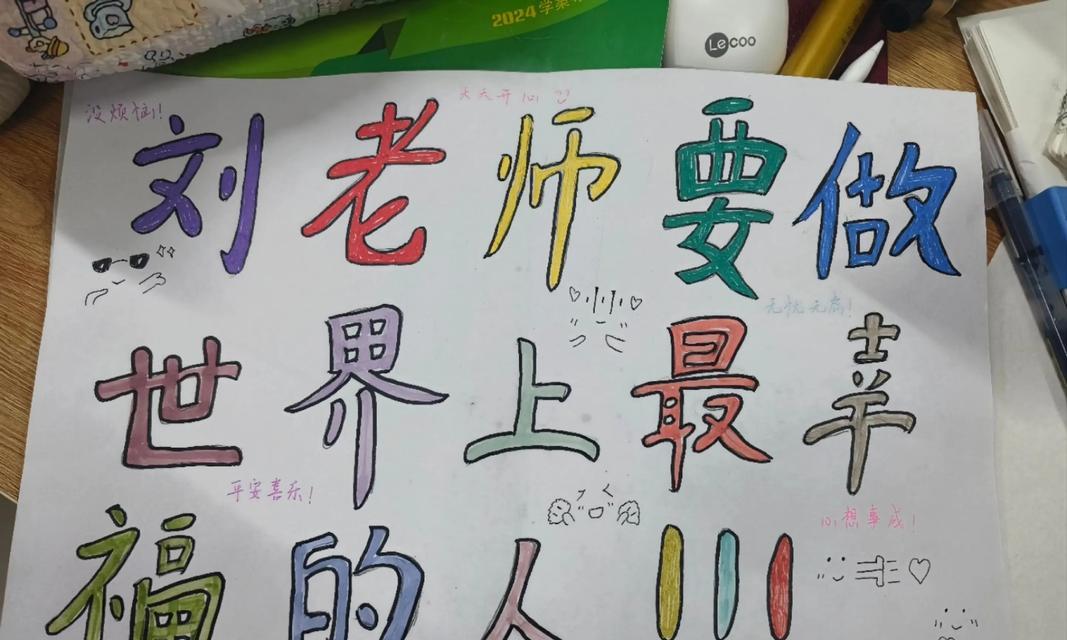 2024 学案
Lecoo
没烦恼!
天天开心
刘老师要做
无忧无虑!
世界上最幸
平安喜乐!
心想事成!
福的人!!!